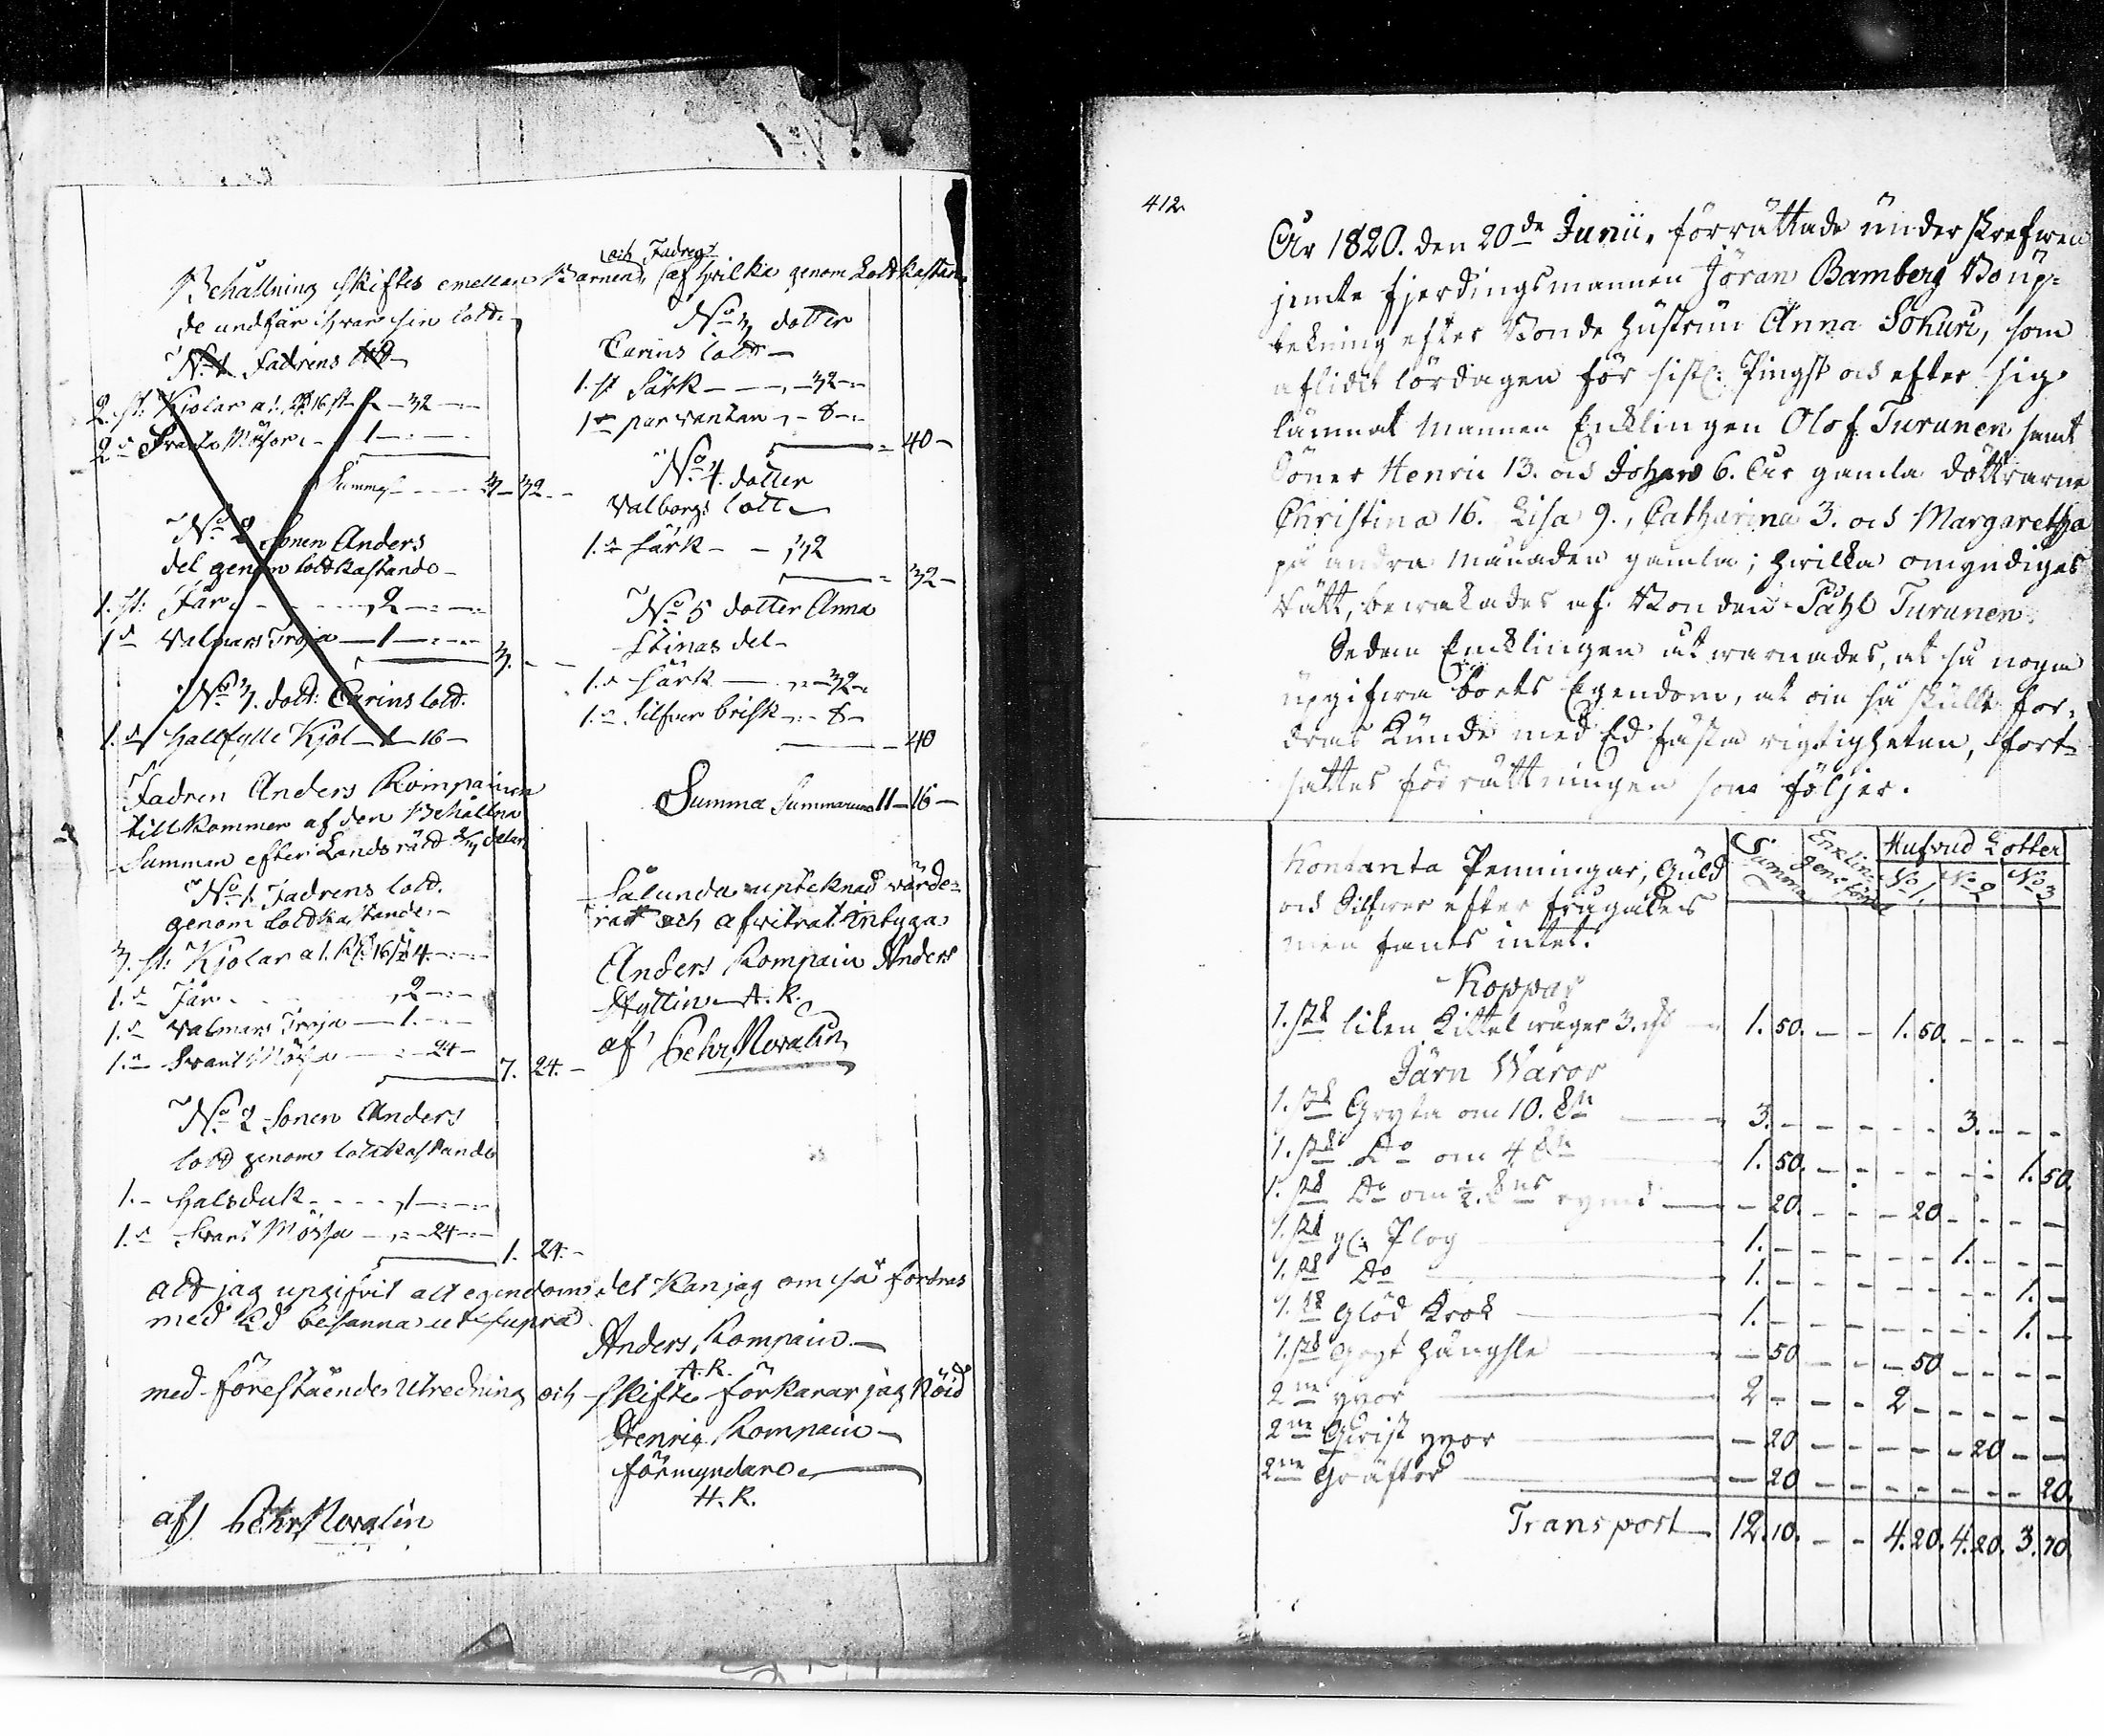 och Fadren
Behållning skiftes emellan Barnen, af hvilka genom Lottkastan-
de undfår hvar sin lott.
No 1 Fadrens lott
2. st. Kjolar a 1. 16 st 2 - 32 -
2. Svarta Mössor - 1 -
Summa - 3 - 32 -
No 2 Sonen Anders
del genom lottkastande -
1. st: Får - - 2 -
1 Valmars Tröja - 1 -
3. -
No 3. dott: Carins lott.
1. halfylle Kjol - 1 - 16 -
Fadren Anders Kompainen
tillkommer af den Behållna
Summan efter Lands rätt 2/3 delar
No 1. Fadrens lott.
genom lottkastande -
3. st: Kjolar a 1. R 16 s 4. -
1. Får - - 2 -
1. Valmars Tröja - 1. -
1. Svart Mössa - 24 -
7. 24. -
No 2 Sonen Anders
lott genom lottkastande
1. - halsduk - - - 1 -
1. Svart Mössa - 24 -
1. 24. -
No 3 dotter
Carins lott -
1. st Särk - - 32 -
1 par vantar - 8 -
- 40 -
No 4. dotter
Valborgs lott
1. särk - - 32
- 32 -
No 5 dotter Anna
Stinas del -
1. särk - - 32 -
1. Silfver brisk - 8 -
- 40
Summa Summarum 11 - 16 -
Sålunda uptecknad värde-
rat och afvitrat intyga
Anders Kompain Anders
Hyttin A. K.
af Pehr Noralin
att jag upgifvit alt egendoms det kan jag om så fordras
med Ed besanna ut supra
Anders Kompain -
A. K.
med förestående Utredning och skifte förklarar jag nöjd
Henric Kompain -
förmyndare
H. K.
af Pehr Noralin
412
År 1820. den 20de Junii, förrättade underskrefwen
jemte fjerdingsmannen Jöran Bamberg Boup-
tekning efter Bonde hustrun Anna Sokuri, som
aflidit lördagen för sistl: Pingst och efter sig
lämnat mannen Encklingen Olof Turunen samt
Söner Henric 13. och Johan 6. åar gamla döttrarne
Christina 16. Lisa 9., Catharina 3. och Margaretha
på andra månaden gamla; hwilka omyndiges
Rätt, bewakades af Bonden Påhl Turunen.
Sedan Encklingen utwarnades, at så noga
upgifwa boets Egendom, at om så skulle for-
dras kunde med Ed fästa rigtigheten, fort-
sattes förrättningen som följer.
Kontanta Penningar, Guld
och Silfwer efter frågades
men fants intet.
Summa Enklin-gens Hufvud Lotter
No 1. No 2 No 3
Koppar
1. st liten Kittel wäger 3. - 1. 50. - - 1. 50. - - - -
Järn Waror
1. st Gryta om 10. - 3. - - - - - 3. - - -
1. st Do om 4 - 1. 50. - - - - - - 1. 50.
1. st Do om ½ rymd - 20. - - - 20 - - - -
1. st gl: Plog 1. - - - - - 1. - - -
1. st Do 1. - - - - - - - 1. -
1. st Glöd Krok 1. - - - - - - - 1. -
1. st Gryt hängsle - 50 - - - 50 - - - -
2ne yxor 2 - - - 2 - - - - -
2ne yxor - 20 - - - - - 20 - -
2ne - 20 - - - - - - - 20.
Transport 12. 10. - - 4. 20. 4. 20. 3. 70